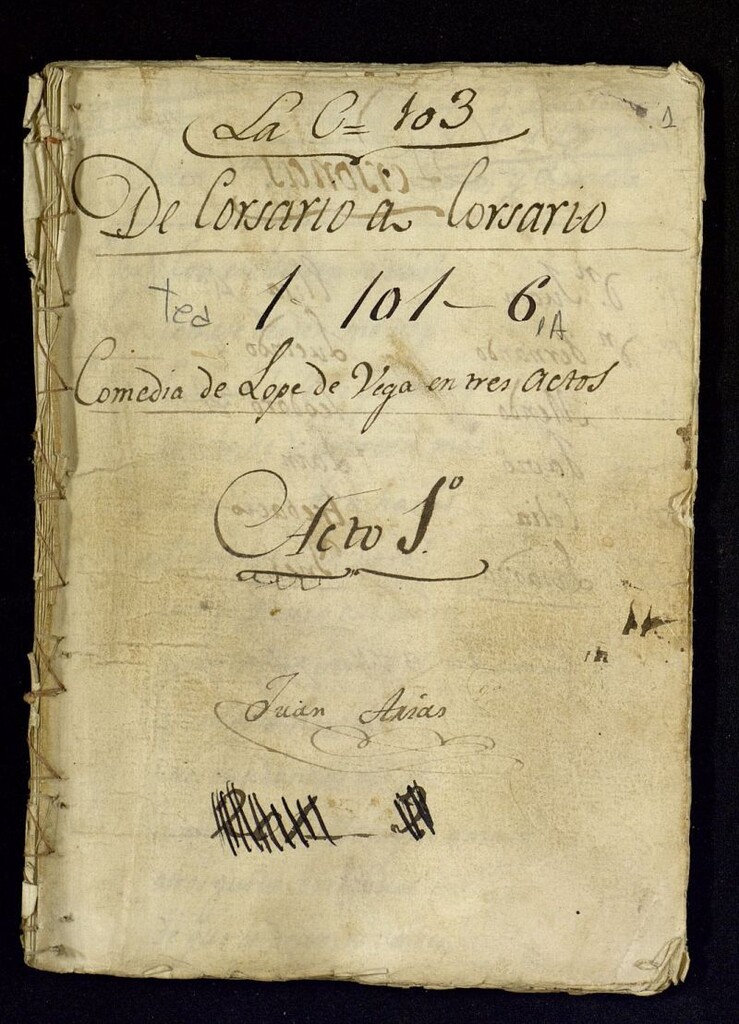 1
La C= 103
De Corsario a Corsario
tea 1 101-6, A
Comedia de Lope de Vega en tres actos
Acto 1º
Juan Arias